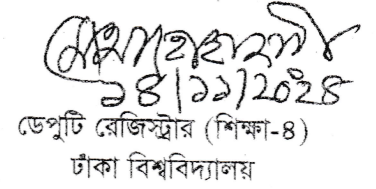 ১৪/১১/২০২৪
ডেপুটি রেজিস্ট্রার (শিক্ষা-৪)
ঢাকা বিশ্ববিদ্যালয়